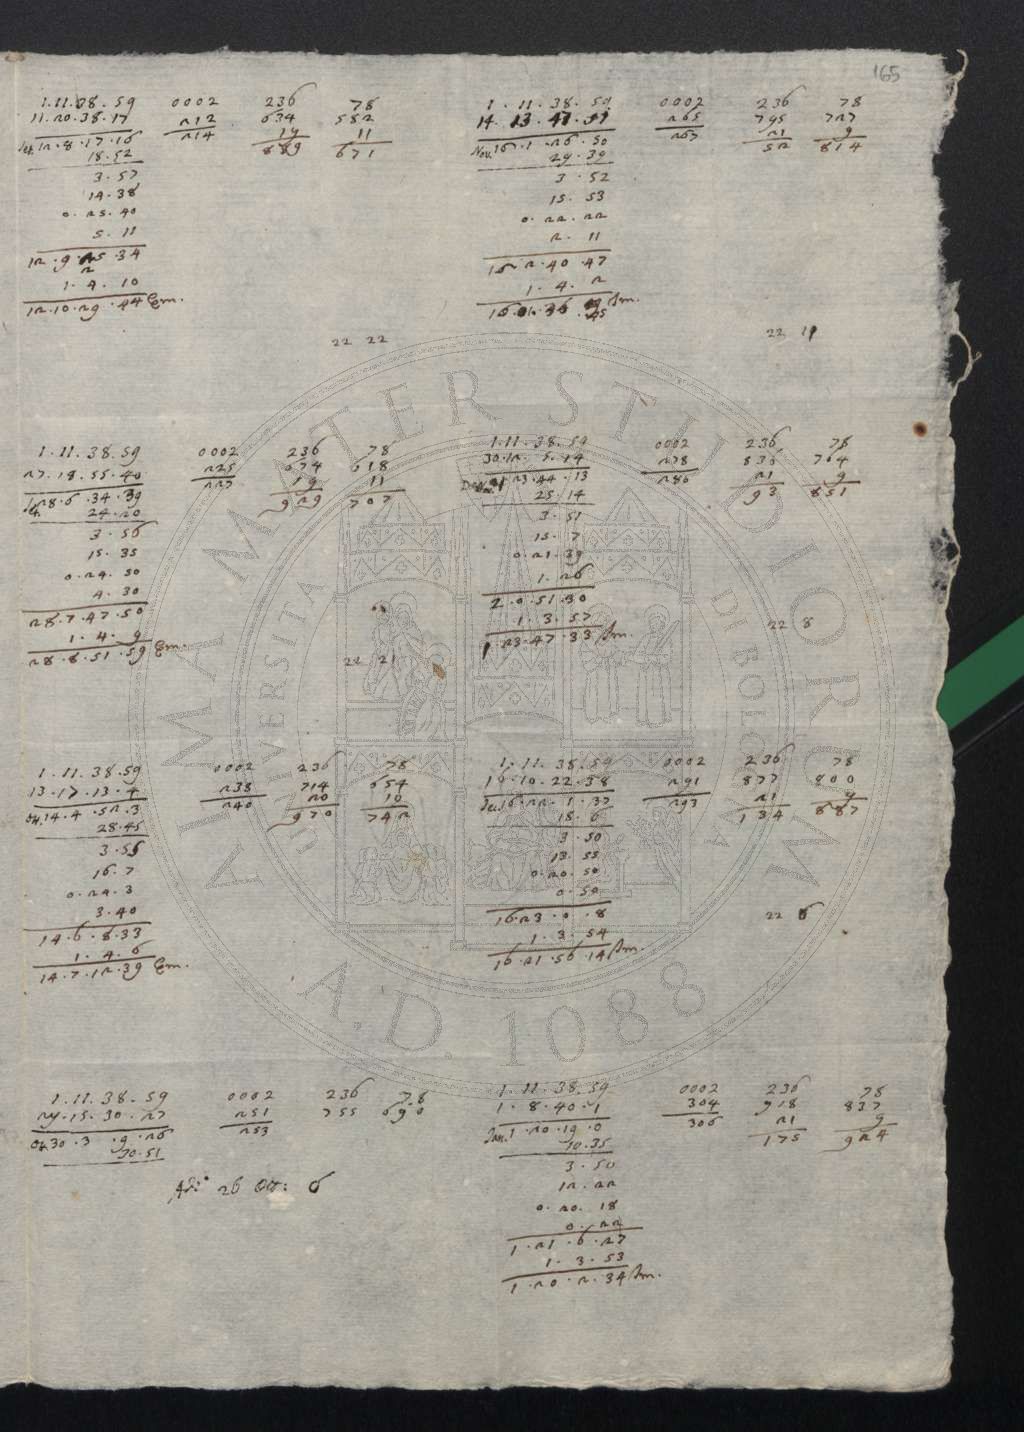 165
1.11.38.59 0002 236 78
11.20.38.17 212 634 582
Set. 12.8.17.16 214 19 11
18.52 889 671
3.57
14.38
0.25.40
5.11
12.9.25.34
2
1.4.10
12.10.29.44 Em.
22 22
1.11.38.59 0002 236 78
14.13.47.51 265 795 727
Nov. 16.1.26.50 267 21 9
29.39 52 814
3.52
15.53
0.22.22
2.11
16.2.40.47
1.4.2
16.1.36.45 Im.
22 11
1.11.38.59 0002 236 78
27.18.55.40 225 674 618
Set. 28.6.34.39 227 19 11
24.20 929 707
3.56
15.35
0.24.50
4.30
28.7.47.50
1.4.9
28.8.51.59 Em.
22 21
1.11.38.59 0002 236 78
30.12.5.14 278 836 764
1.23.44.13 280 21 9
25.14 93 851
3.51
15.7
0.21.39
1.26
2.0.51.30
1.3.57
1.23.47.33 Im.
22 8
1.11.38.59 0002 236 78
13.17.13.4 238 714 654
Ot. 14.4.52.3 240 20 10
28.45 970 742
3.56
16.7
0.24.3
3.40
14.6.8.33
1.4.6
14.7.12.39 Em.
1.11.38.59 0002 236 78
15.10.22.38 291 877 800
Dec. 16.22.1.37 293 21 9
18.6 134 887
3.50
13.55
0.20.50
0.50
16.23.0.8
1.3.54
16.21.56.14 Im.
22 6
1.11.38.59 0002 236 78
29.15.30.27 251 755 690
Ot. 30.3.9.26 253
30.51
Adì 26 Ott: 6
1.11.38.59 0002 236 78
1.8.40.1 304 918 837
Jan. 1.20.19.0 306 21 9
10.35 175 924
3.50
12.22
0.20.18
0.22
1.21.6.27
1.3.53
1.20.2.34 Im.
ALMA MATER STUDIORUM
UNIVERSITÀ DI BOLOGNA
A.D. 1088